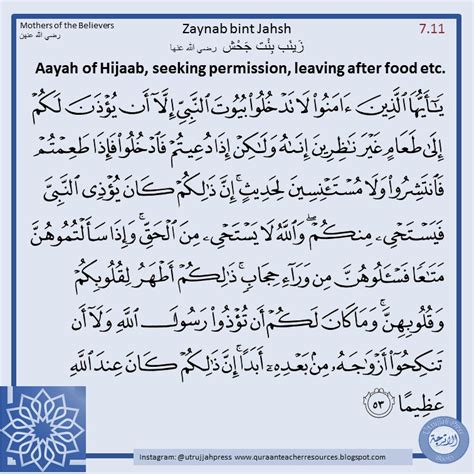 Mothers of the Believers
رضي الله عنهن
Zaynab bint Jahsh
زَيْنَب بِنْت جَحْش رضي الله عنها
7.11
Aayah of Hijaab, seeking permission, leaving after food etc.
يَـٰٓأَيُّهَا ٱلَّذِينَ ءَامَنُوا۟ لَا تَدْخُلُوا۟ بُيُوتَ ٱلنَّبِىِّ إِلَّآ أَن يُؤْذَنَ لَكُمْ
إِلَىٰ طَعَامٍ غَيْرَ نَـٰظِرِينَ إِنَىٰهُ وَلَـٰكِنْ إِذَا دُعِيتُمْ فَٱدْخُلُوا۟ فَإِذَا طَعِمْتُمْ
فَٱنتَشِرُوا۟ وَلَا مُسْتَـْٔنِسِينَ لِحَدِيثٍ ۚ إِنَّ ذَٰلِكُمْ كَانَ يُؤْذِى ٱلنَّبِىَّ
فَيَسْتَحْىِۦ مِنكُمْ ۖ وَٱللَّهُ لَا يَسْتَحْىِۦ مِنَ ٱلْحَقِّ ۚ وَإِذَا سَأَلْتُمُوهُنَّ
مَتَـٰعًا فَسْـَٔلُوهُنَّ مِن وَرَآءِ حِجَابٍ ۚ ذَٰلِكُمْ أَطْهَرُ لِقُلُوبِكُمْ
وَقُلُوبِهِنَّ ۚ وَمَا كَانَ لَكُمْ أَن تُؤْذُوا۟ رَسُولَ ٱللَّهِ وَلَآ أَن
تَنكِحُوٓا۟ أَزْوَٰجَهُۥ مِنۢ بَعْدِهِۦٓ أَبَدًا ۚ إِنَّ ذَٰلِكُمْ كَانَ عِندَ ٱللَّهِ
عَظِيمًا ٥٣
Instagram: @utrujjahpress / www.quraanteacherresources.blogspot.com